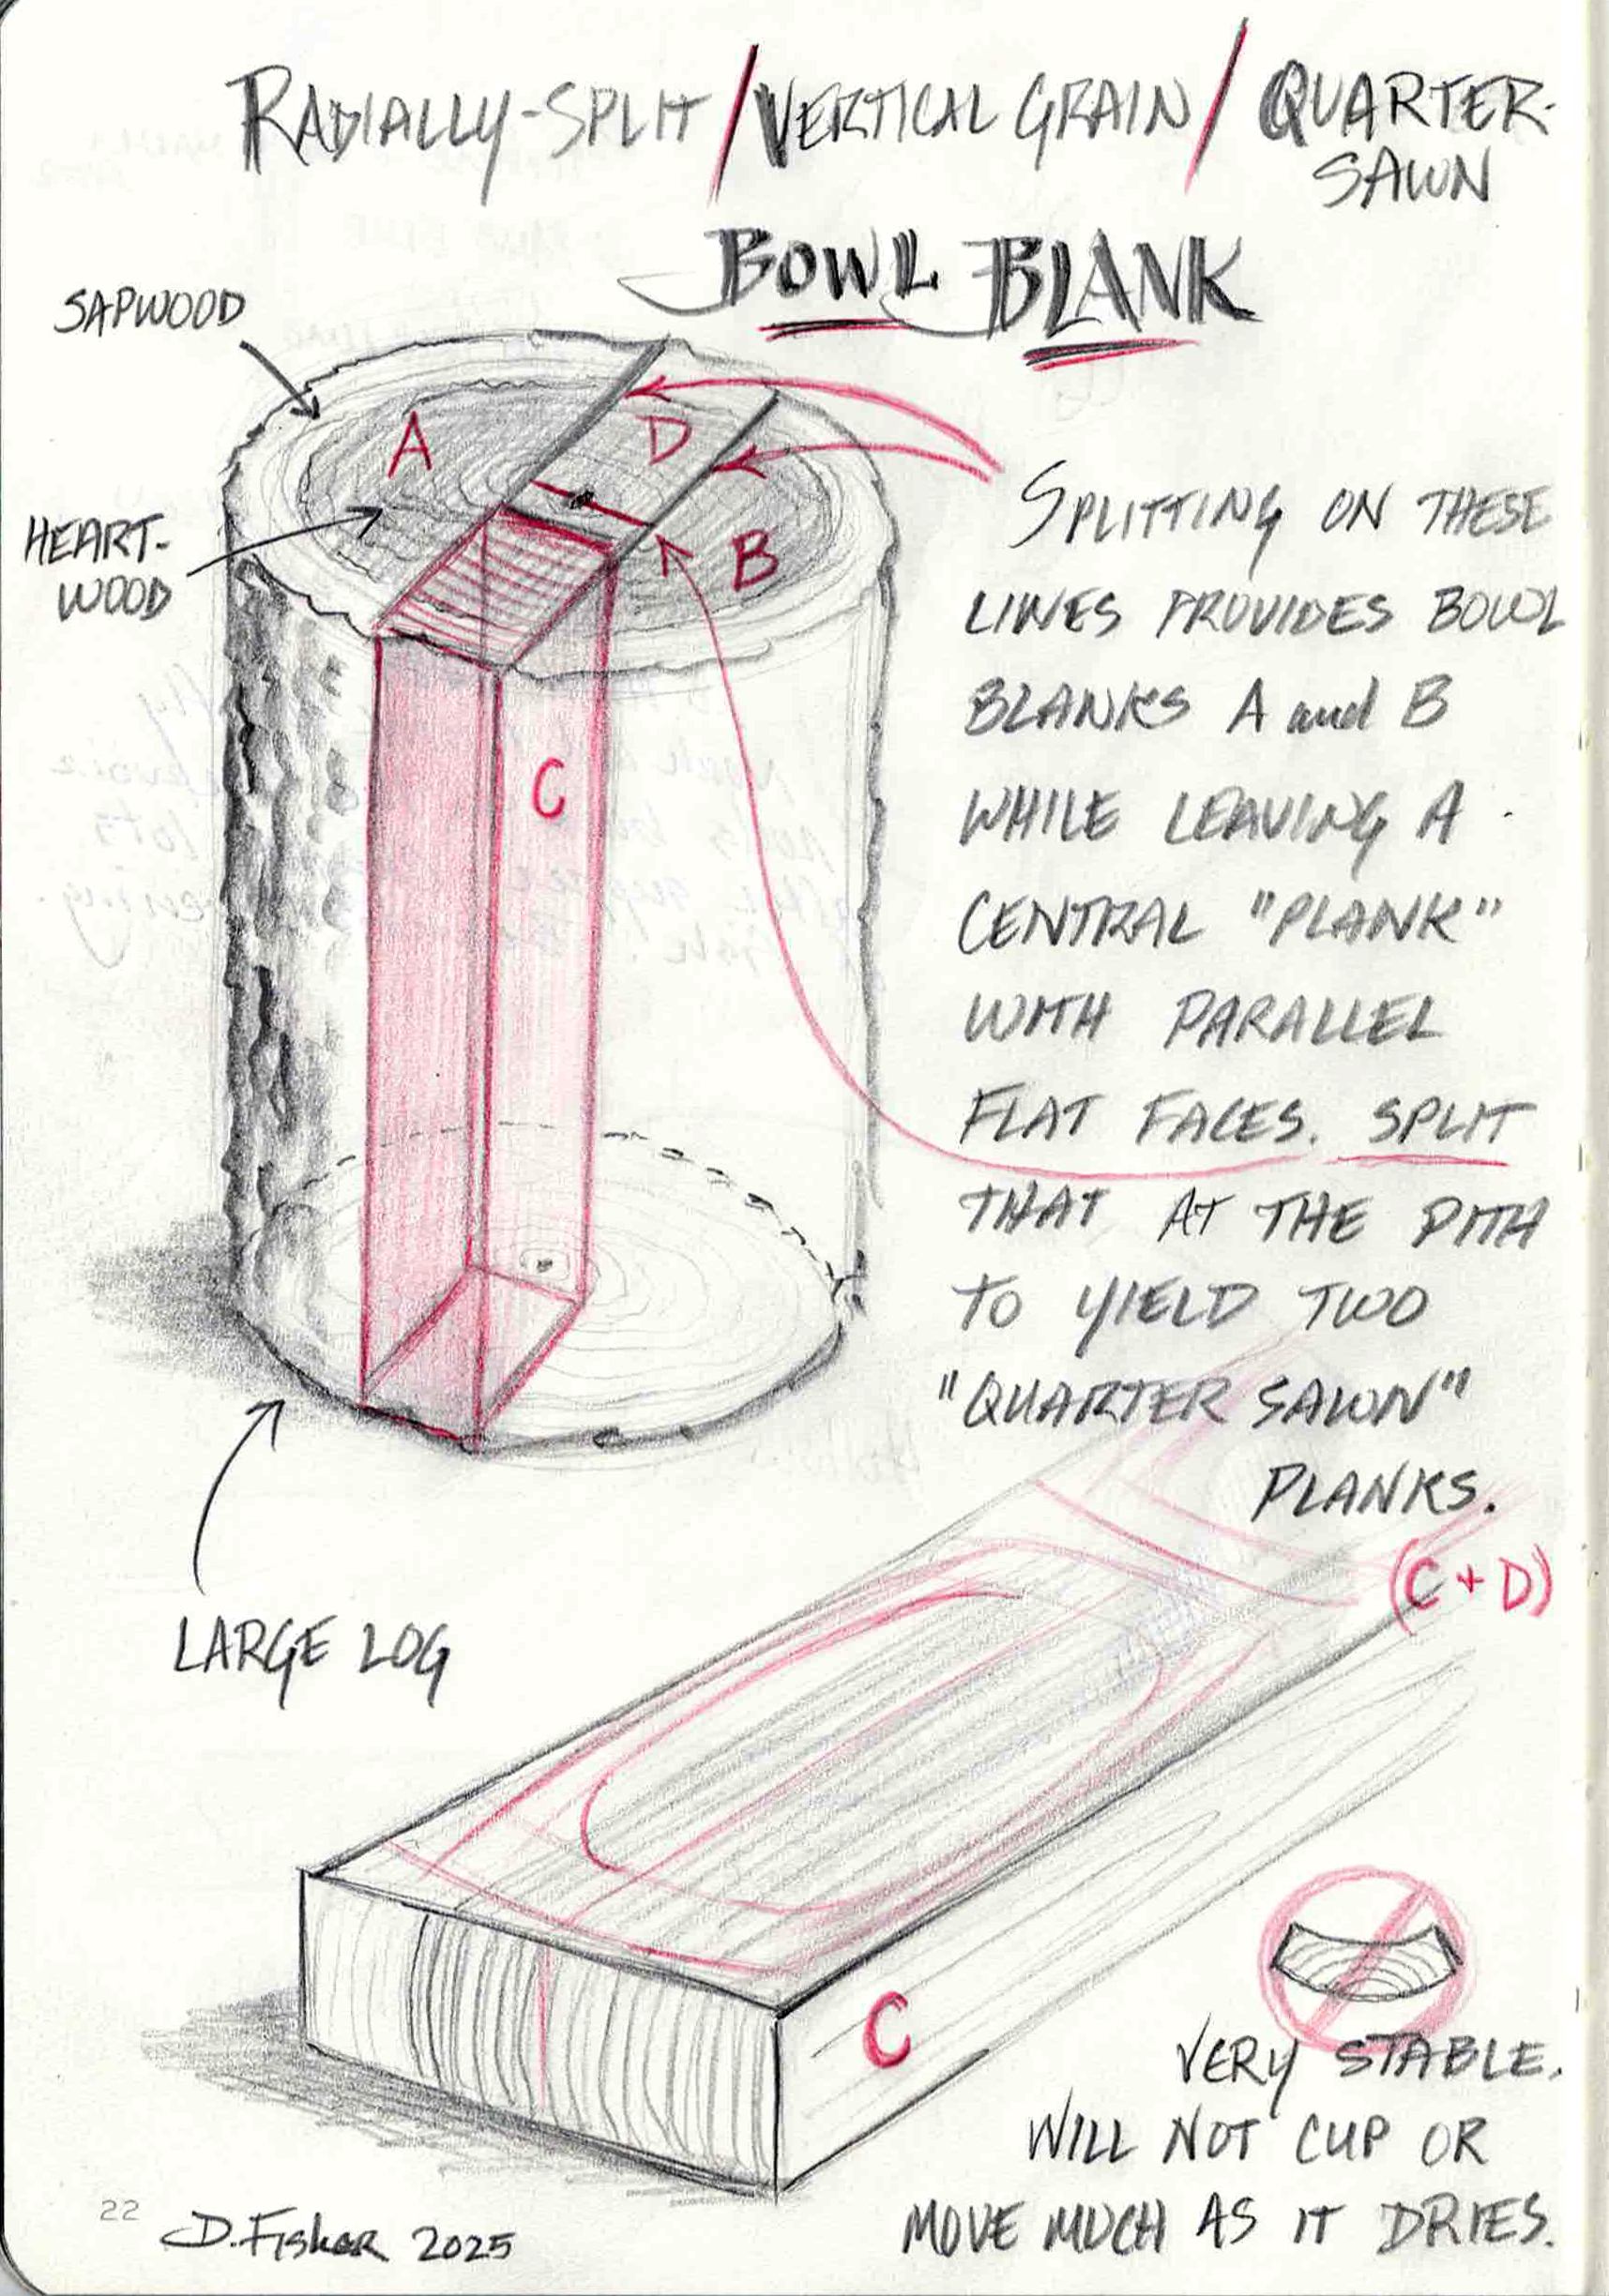 RADIALLY-SPLIT/VERTICAL GRAIN/QUARTER-
SAWN
BOWL BLANK
SAPWOOD
A
D
HEART-
WOOD
B
C
SPLITTING ON THESE
LINES PROVIDES BOWL
BLANKS A and B
WHILE LEAVING A
CENTRAL "PLANK"
WITH PARALLEL
FLAT FACES. SPLIT
THAT AT THE PITH
TO YIELD TWO
"QUARTER SAWN"
PLANKS.
(C + D)
LARGE LOG
C
VERY STABLE.
WILL NOT CUP OR
MOVE MUCH AS IT DRIES.
22
D. Fisher 2025